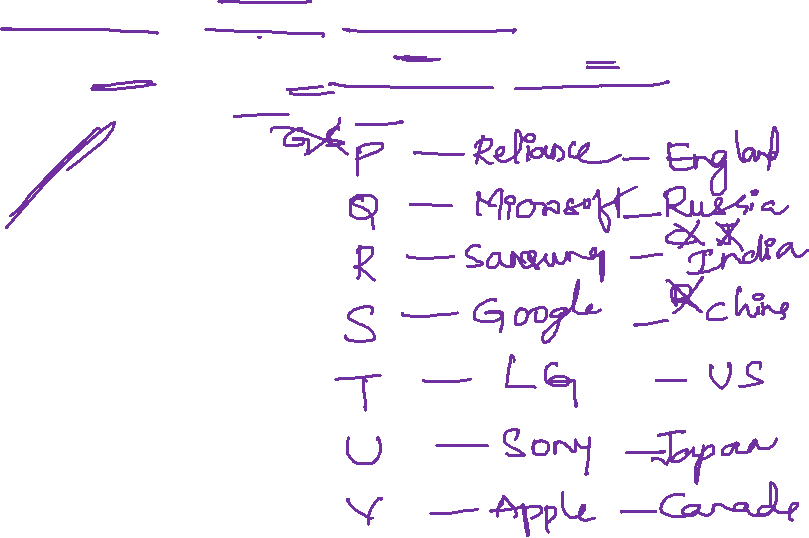 P — Reliance — England
Q — Microsoft — Russia
R — Samsung — India
S — Google — China
T — LG — US
U — Sony — Japan
V — Apple — Canada